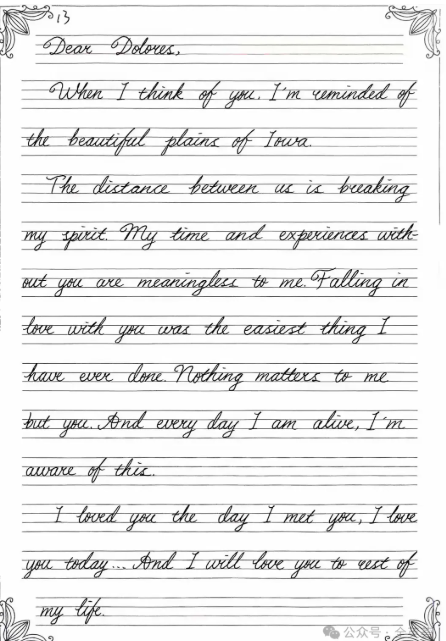 13
Dear Dolores,
When I think of you, I'm reminded of
the beautiful plains of Iowa.
The distance between us is breaking
my spirit. My time and experiences with-
out you are meaningless to me. Falling in
love with you was the easiest thing I
have ever done. Nothing matters to me
but you. And every day I am alive, I'm
aware of this.
I loved you the day I met you, I love
you today... And I will love you to rest of
my life.
公众号